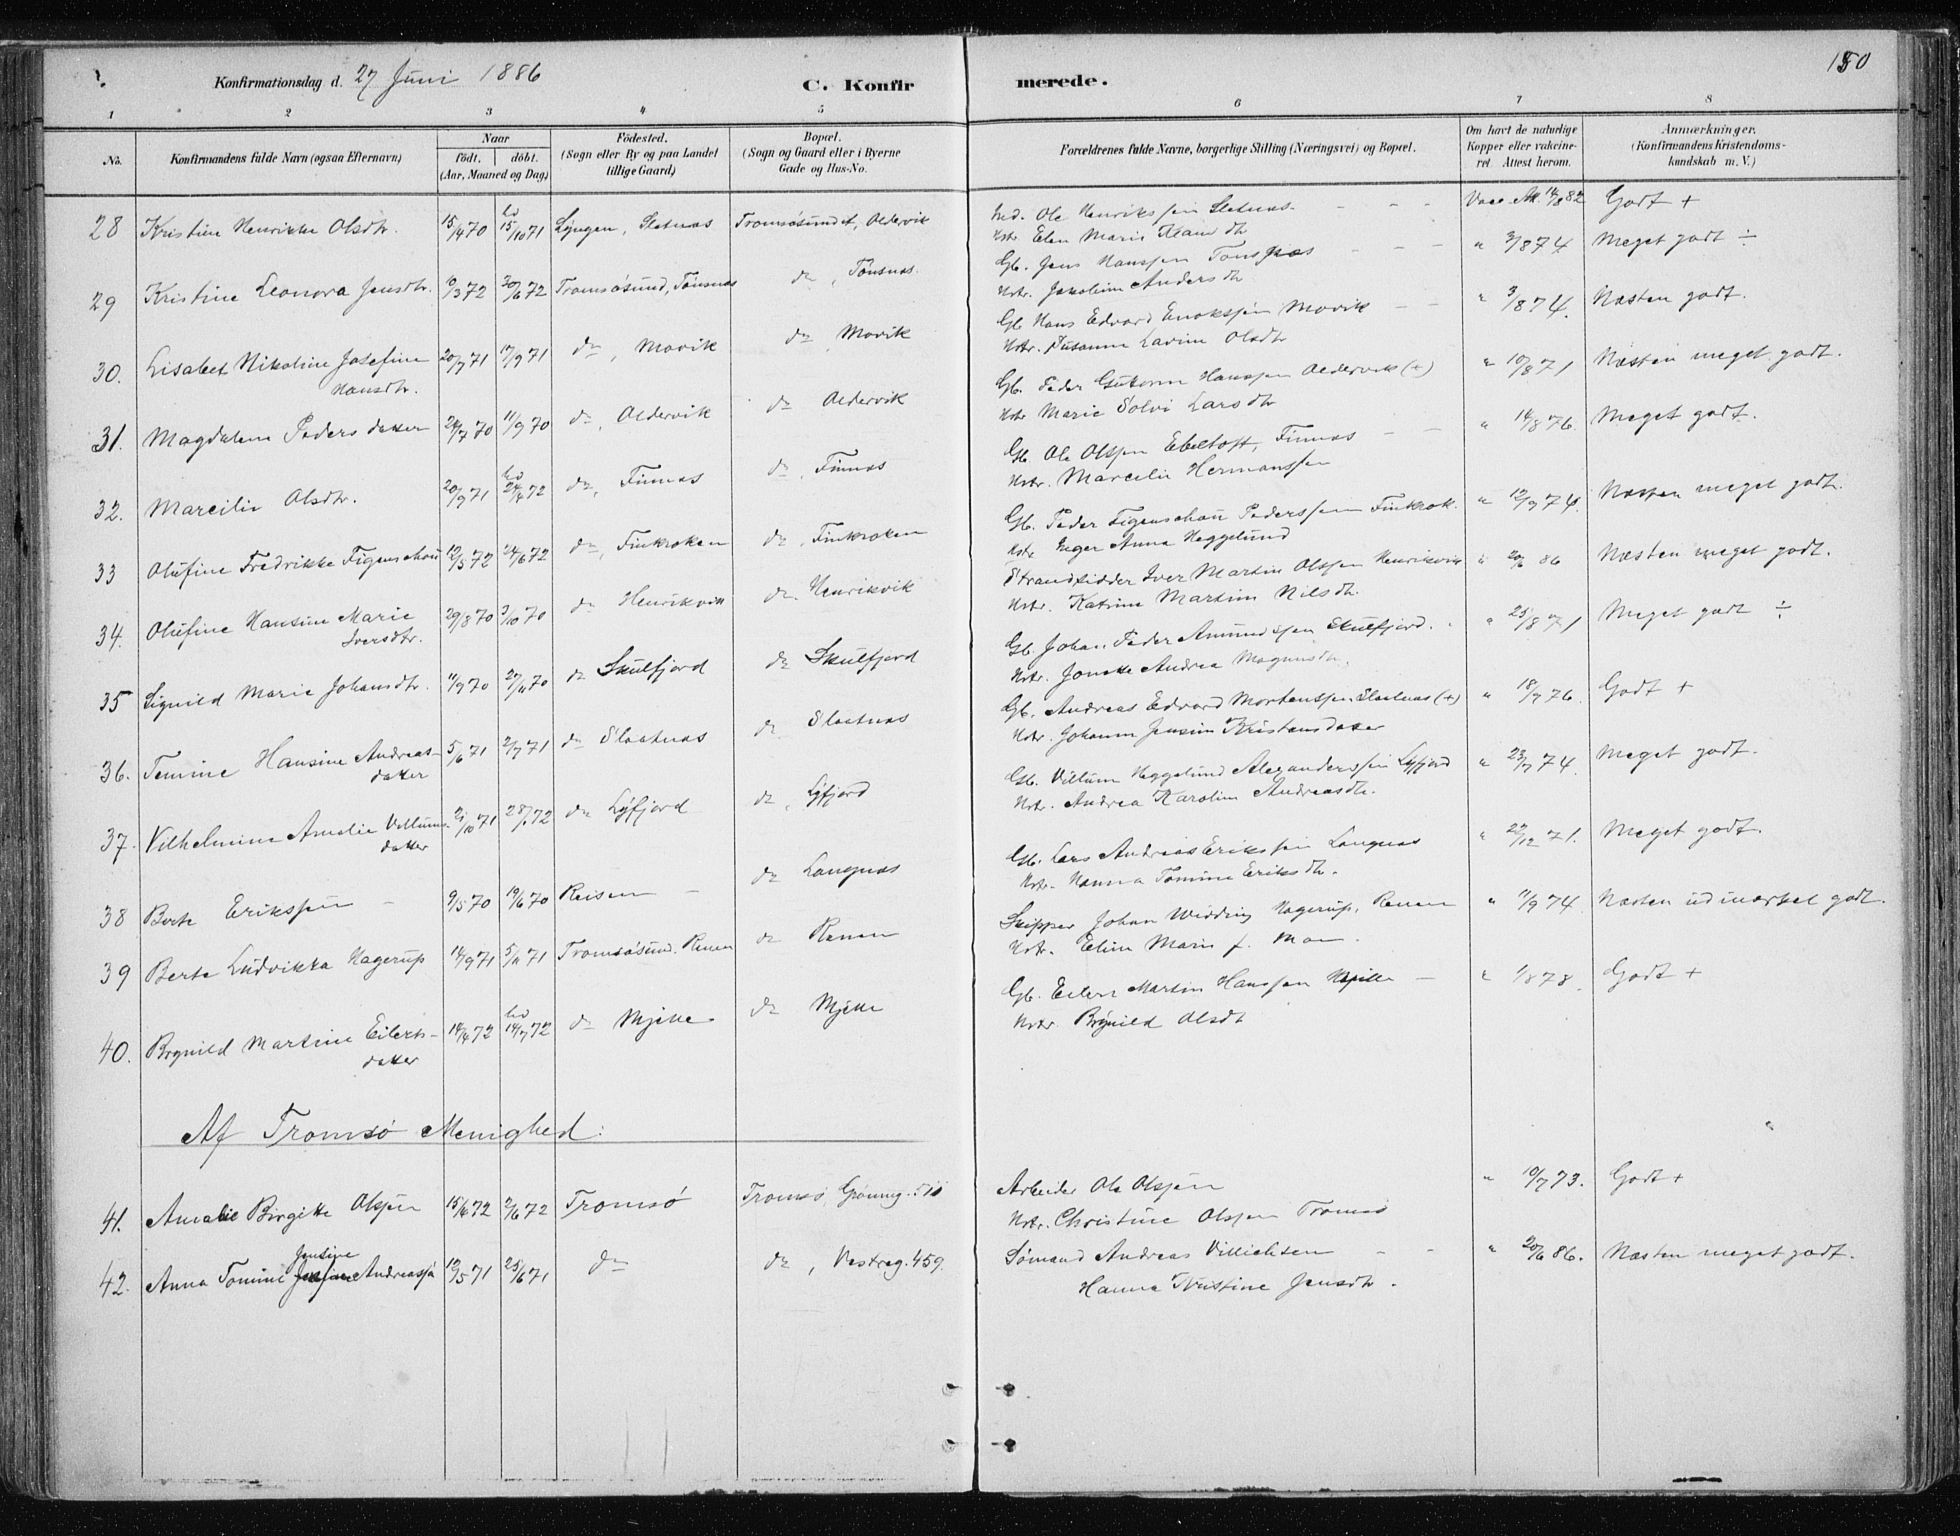 150
Konfirmationsdag d. 27 Juni 1886
C. Konfirmerede.
1 2 3 4 5 6 7 8
No. Konfirmandens fulde Navn (ogsaa Efternavn) Naar født. døbt. (Aar, Maaned og Dag) Fødested. (Sogn eller By og paa Landet tillige Gaard) Bopæl. (Sogn og Gaard eller i Byerne Gade og Hus-No. Forældrenes fulde Navne, borgerlige Stilling (Næringsvei) og Bopæl. Om havt de naturlige Kopper eller vakcineret. Attest herom. Anmærkninger. (Konfirmandens Kristendomskundskab m. V.)
28 Kristine Henrikke Olsdtr. 15/4 70 15/10 71 Lyngen, Sletnæs Tromsøsundet, Oldervik Ole Henrikssen Sletnæs. 14/8 82 Godt +
29 Kristine Leonora Jensdtr. 9/3 72 30/6 72 Tromsøsund, Tønsnæs do, Tønsnæs. Gb. Jens Hanssen Tønsnæs Hstr. Jakobine Andersdtr " 3/8 74 Meget godt ÷
30. Lisabet Nikoline Josefine Hansdtr. 20/7 71 17/9 71 do, Movik do Movik Gb. Hans Edvard Enokssen Movik Hstr. Susanne Lavine Olsdtr " 3/8 74. Næsten godt.
31. Magdalene Pedersdatter 24/7 70 11/9 70 do, Oldervik do Oldervik Gb. Peder Gutorm Hanssen Oldervik (+) Hstr Marie Solvi Larsdtr " 10/8 71 Næsten meget godt.
32. Marcilie Olsdtr. 20/9 71 24/4 72 do, Finnæs do, Finnæs Gb. Ole Olssen Ebeltoft, Finnæs Hstr. Marcelie Hermanssen " 14/8 76. Meget godt.
33 Olufine Fredrikke Figenschou 12/5 72 24/6 72 do, Finkroken do, Finkroken Gb. Peder Figenschou Pederssen Finkrok. Hstr Inger Anna Heggelund " 12/9 74. Næsten meget godt.
34. Olufine Hansine Marie Iversdtr. 29/8 70 3/10 70 do Henrikvik do. Henrikvik Strandsidder Iver Martin Olssen Henrikvik Hstr. Katrine Martine Nilsdtr. " 20/6 86 Næsten meget godt.
35 Signild Marie Johansdtr. 11/9 70 27/11 70 do Skulfjord do Skulfjord Gb. Johan Peder Amundssen Skulfjord. Hstr. Jonette Andrea Magnusdtr. " 25/8 71 Meget godt ÷
36. Temine Hansine Andreasdatter 5/6 71 2/7 71 do Slaatnæs do Slaatnæs Gb. Andreas Edvard Mortenssen Slaatnæs (+) Hstr. Johanne Jensine Kristensdatter " 18/7 76. Godt +
37. Vilhelmine Amalie Villumsdatter 21/10 71 28/1 72 do Lyfjord do, Lyfjord Gb. Villum Heggelund Alexanderssen Lyfjord Hstr. Andrea Karoline Andreasdtr. " 23/7 74. Meget godt.
38 Berte Erikssen 9/5 70 19/6 70 Reisen do Langnæs Gb. Lars Andreas Erikssen Langnæs Hstr. Hanna Tomine Eriksdtr. " 27/12 71. Meget godt.
39 Berte Ludvikka Hagerup 14/9 71 5/11 71 Tromsøsund. Renen do Renen Skipper Johan Widding Hagerup, Renen Hstr. Eline Marie f. Moe " 11/9 74. Næsten udmærket godt.
40. Brynild Martine Eilertsdatter 14/4 72 14/7 72 do Mjelle do Mjelle Gb. Eilert Martin Hanssen Mjelle Hstr Brynild Olsdt " 1/8 78. Godt +
Af Tromsø Menighed:
41. Amalie Birgitte Olssen 15/4 72 2/6 72 Tromsø Tromsø Grønneg. Arbeider Ole Olssen Hstr. Christine Olssen Tromsø " 10/7 73. Godt +
42. Anna Tomine Jensine Andreassen 12/5 71 25/6 71 do do, Vestreg. 459. Sømand Andreas Villichsen Hanna Kristine Jensdtr. " 20/6 86. Næsten meget godt.